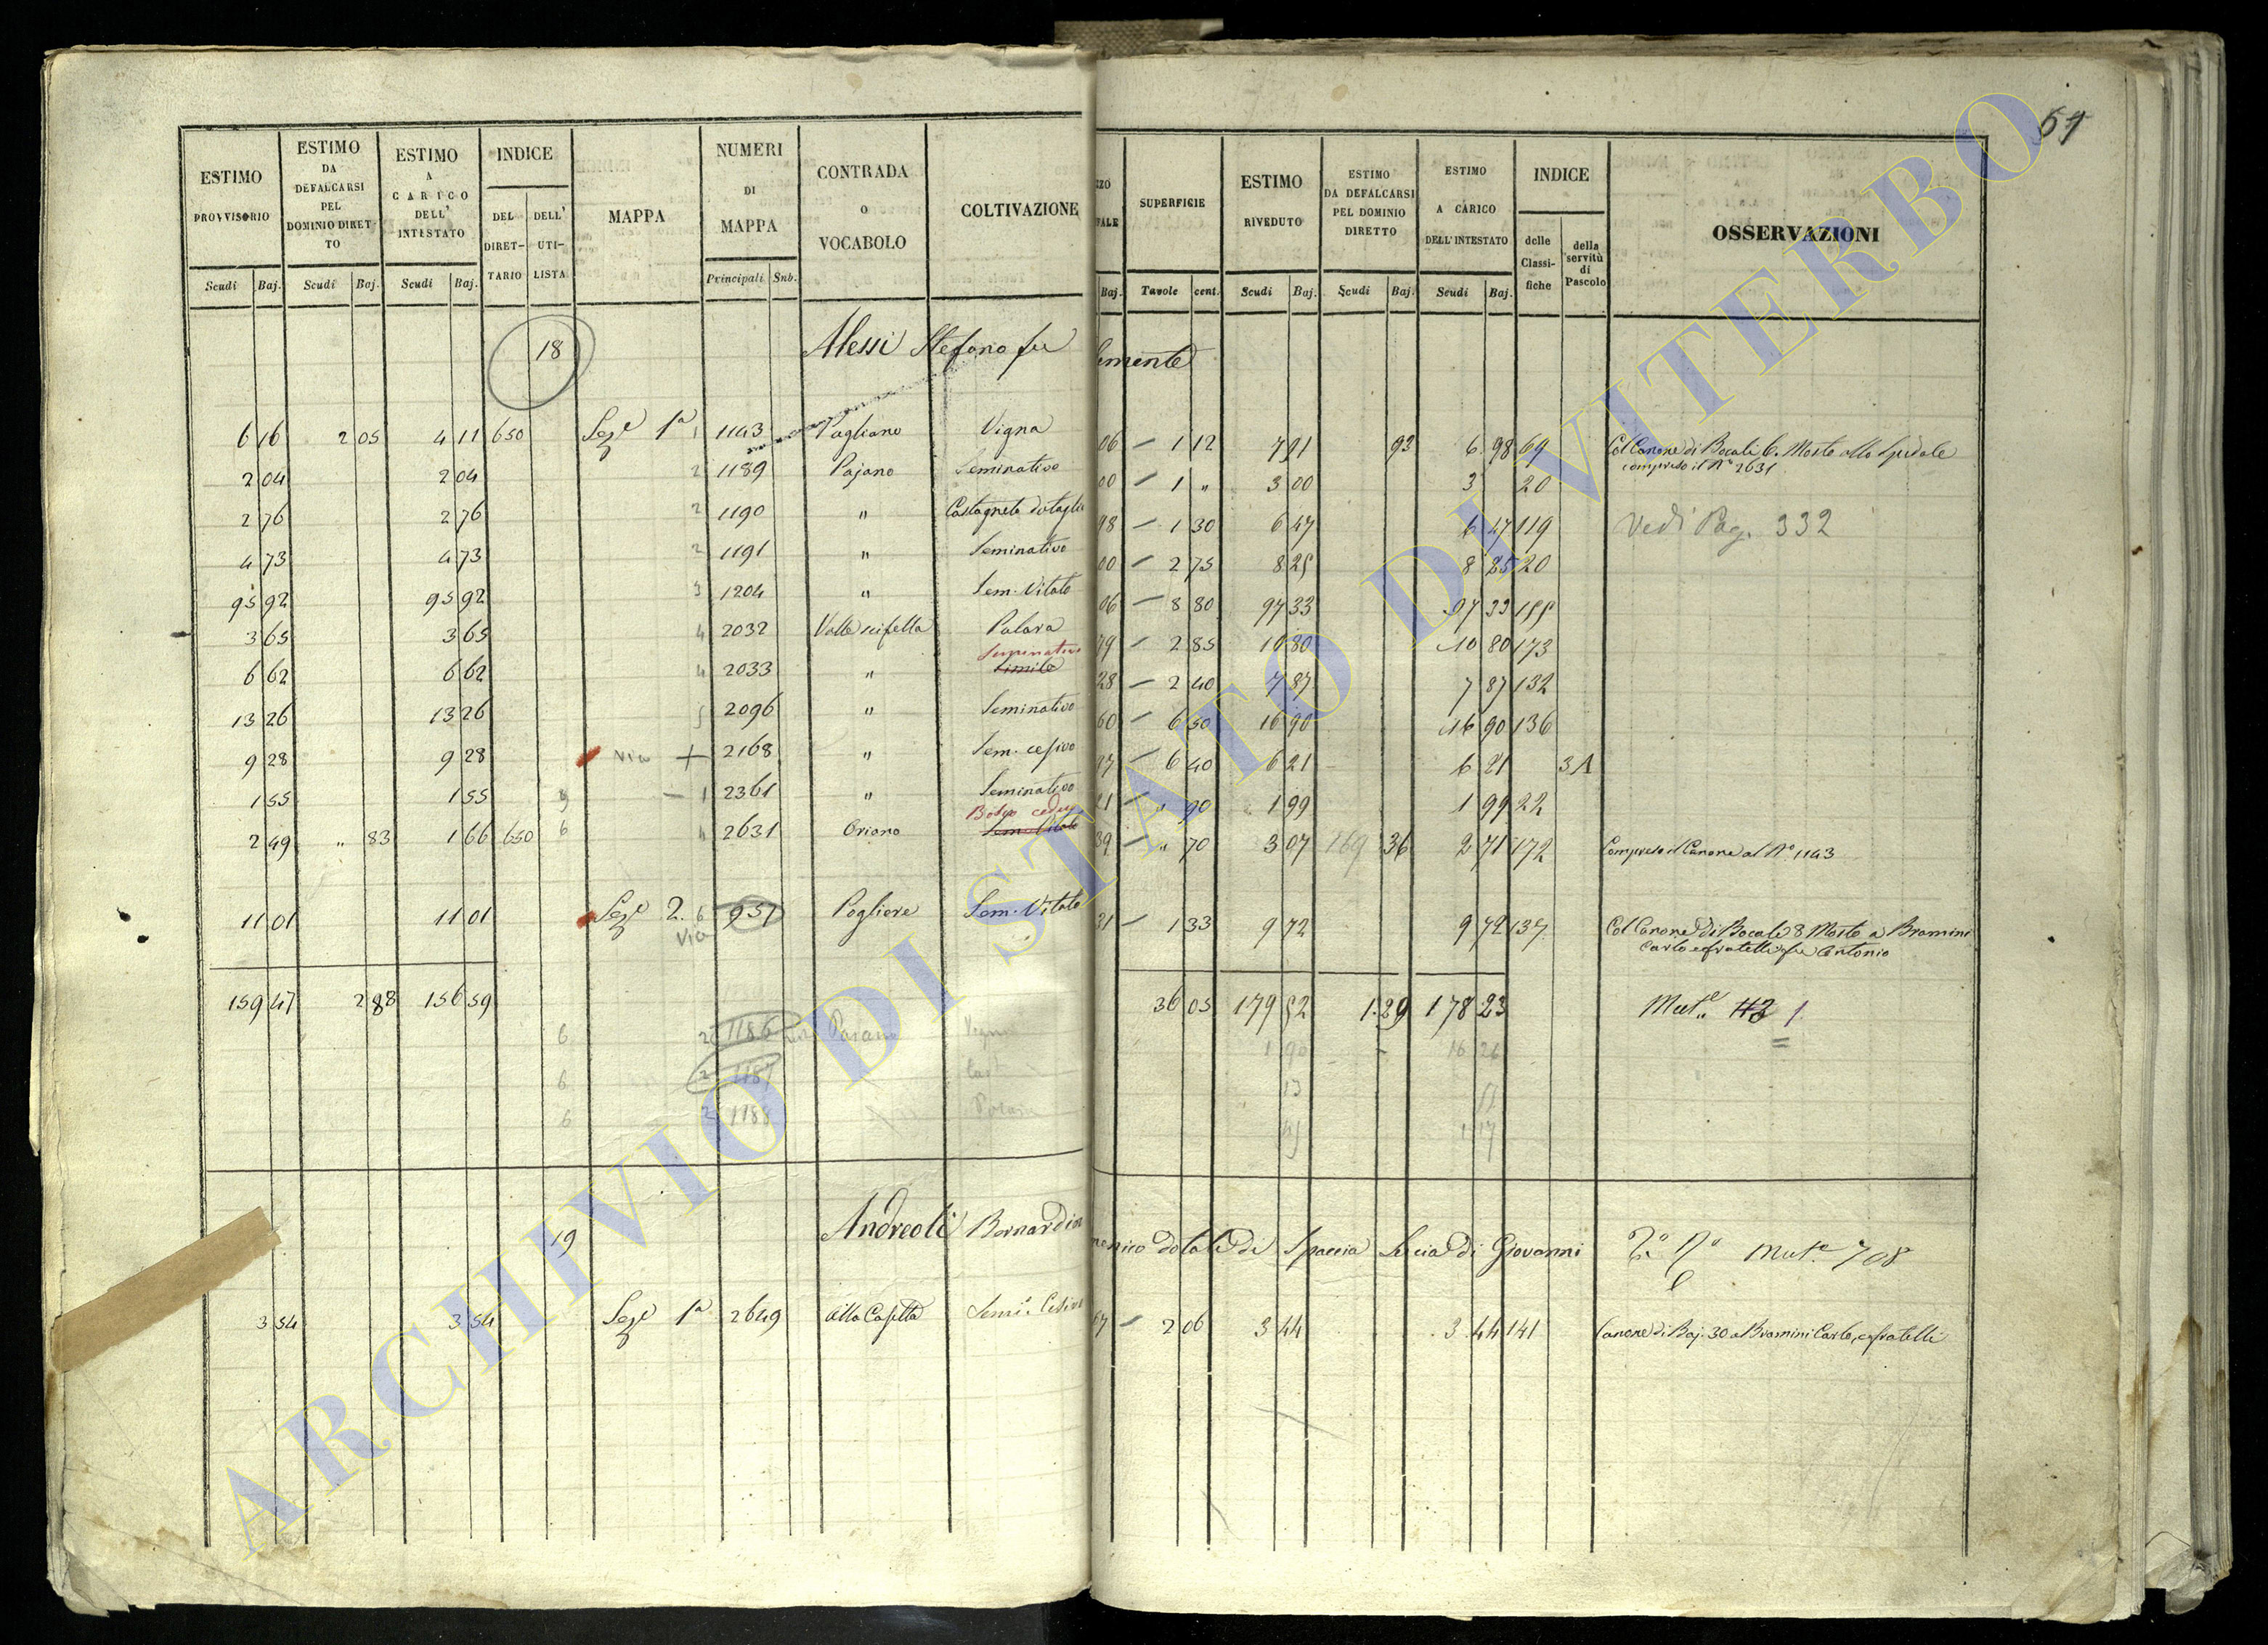 67
ESTIMO PROVVISORIO
ESTIMO DA DEFALCARSI PEL DOMINIO DIRETTO
ESTIMO A CARICO DELL' INTESTATO
INDICE
DEL DIRETTARIO
DELL' UTILISTA
MAPPA
NUMERI DI MAPPA
CONTRADA O VOCABOLO
COLTIVAZIONE
SUPERFICIE
ESTIMO RIVEDUTO
ESTIMO DA DEFALCARSI PEL DOMINIO DIRETTO
ESTIMO A CARICO DELL'INTESTATO
INDICE
delle Classifiche
della servitù di Pascolo
OSSERVAZIONI
Scudi Baj. Scudi Baj. Scudi Baj. Principali Sub. Baj. Tavole cent. Scudi Baj. Scudi Baj. Scudi Baj.
18 Alessi Stefano fu emente
6 16 2 05 4 11 650 Seze 1a 1 1143 Pagliano Vigna 06 1 12 7 91 93 6 98 69 Col Canone di Bocali 6. Mosto allo Spedale
compreso il No 2631
2 04 2 04 2 1189 Pajano Seminativo 00 1 " 3 00 3 20
2 76 2 76 2 1190 " Castagneto 98 1 30 6 47 6 47 119 Vedi Pag. 332
4 73 4 73 2 1191 " Seminativo 00 2 75 8 25 8 25 20
95 92 95 92 3 1204 " Sem. Vitato 06 8 80 97 33 97 33 155
3 65 3 65 4 2032 Valle Palara 79 2 85 10 80 10 80 173
Seminativo
6 62 6 62 4 2033 " Simile 28 2 40 7 87 7 87 132
13 26 13 26 5 2096 " Seminativo 60 6 50 16 90 16 90 136
9 28 9 28 via + 2168 " Sem. cesivo 97 6 40 6 21 6 21 3A
1 55 1 55 1 2361 " Seminativo 21 " 90 1 99 1 99 22
Bosco ceduo
2 49 " 83 1 66 650 6 4 2631 Oriano Sem. Vitato 39 " 70 3 07 169 36 2 71 172 Compreso il Canone al No 1143
11 01 11 01 Seze 2. 6 957 Pogliere Sem. Vitato 31 1 33 9 72 9 72 137 Col Canone di Bocali 8 Mosto a Bramini
via Carlo e fratelli fu Antonio
159 47 2 88 156 59 36 05 179 52 1.29 178 23 Mute. 1
6 2 1186 Pajano Vigna 1 90 16 26
6 2 1187 Cast 13
6 2 1188 Palara 1 17
19 Andreoli Bernardin menico dotale di Spaccia Lucia di Giovanni Mute. 708
3 54 3 54 Seze 1a 2649 alla Casetta Semi. Cesivo 67 2 06 3 44 3 44 141 Canone di Baj. 30 a Bramini Carlo, e fratelli
ARCHIVIO DI STATO DI VITERBO